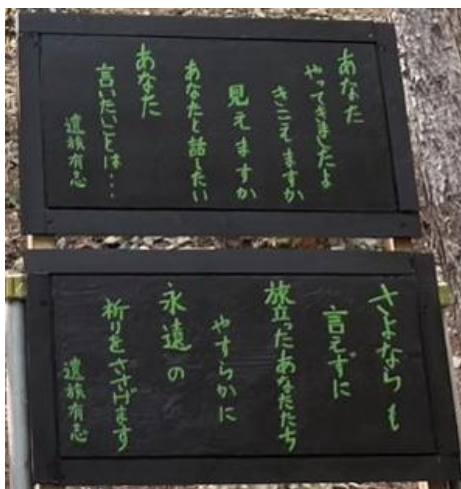 あなた
やってきましたよ
きこえますか
見えますか
あなたと話したい
あなた
言いたいことは・・・
遺族有志
さよならも
言えずに
旅立ったあなたたち
やすらかに
永遠の
祈りをささげます
遺族有志